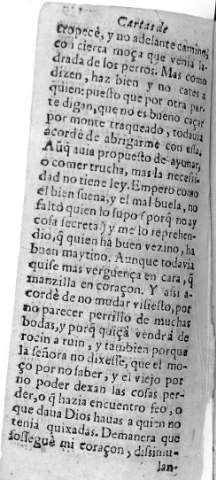 Cartas de
tropecè, y no adelante camino,
co i cierta moça que venia la-
drada de los perros. Mas como
dizen, haz bien y no cates a
quien: puesto que por otra par-
te digan, que no es bueno caçar
por monte traqueado, todavia
acordè de abrigarme con ella.
Aũq̃ auia propuesto de ayunar,
o comer trucha, mas la necessi-
dad no tiene ley. Empero como
el bien suena, y el mal buela, no
faltò quien lo supo (porq̃ no ay
cosa secreta) y me lo reprehen-
dio, q̃ quien há buen vezino, ha
buen maytino. Aunque todavia
quise mas verguença en cara, q̃
manzilla en coraçon. Y assi a-
cordè de no mudar visiesto, por
no parecer perrillo de muchas
bodas, y porq̃ quiçà vendrà de
rocin a ruin, y tambien porque
la señora no dixesse, que el mo-
ço por no saber, y el viejo por
no poder dexan las cosas per-
der, o q̃ hazia encuentro feo, o
que daua Dios hauas a quien no
tenia quixadas. Demanera que
sosseguè mi coraçon, dissimu-
lan-